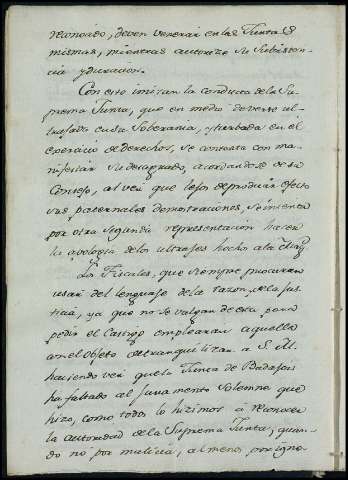 reconocido, deven venerar en las Juntas
mismas, mientras autorize su subsisten-
cia y duracion.
Con esto imitan la conducta de la Su-
prema Junta, que en medio de verse ul-
trajada en su Soberania, y turbada en el
exercicio de derechos, se contenta con ma-
nifestar su desagrado, acordandose de su
Consejo, al ver que lejos de producir efecto
sus paternales demostraciones, se intenta
por otra segunda representacion hacer
la apologia de los ultrages hechos a la Mag.d
Los Fiscales, que siempre procuraran
usar del lenguage de la razon, y de la jus-
ticia, ya que no se valgan de esta para
pedir el Castigo emplearan aquella
con el objeto de tranquilizar a S. M.
haciendo ver que la Junta de Badajoz
ha faltado al juramento solemne que
hizo, como todos lo hizimos de reconocer
la autoridad de la Suprema Junta, quan-
do no por malicia, al menos por igno-